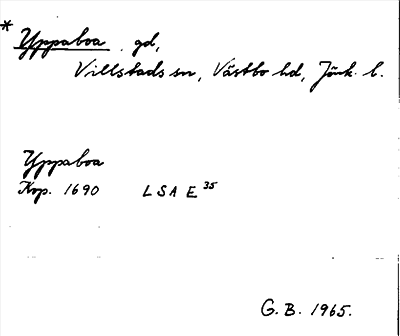 * Yppaboa . gd,
Villstads sn, Västbo hd, Jönk. l.
Yppaboa
Kop. 1690 LSA E 35
G.B. 1965.